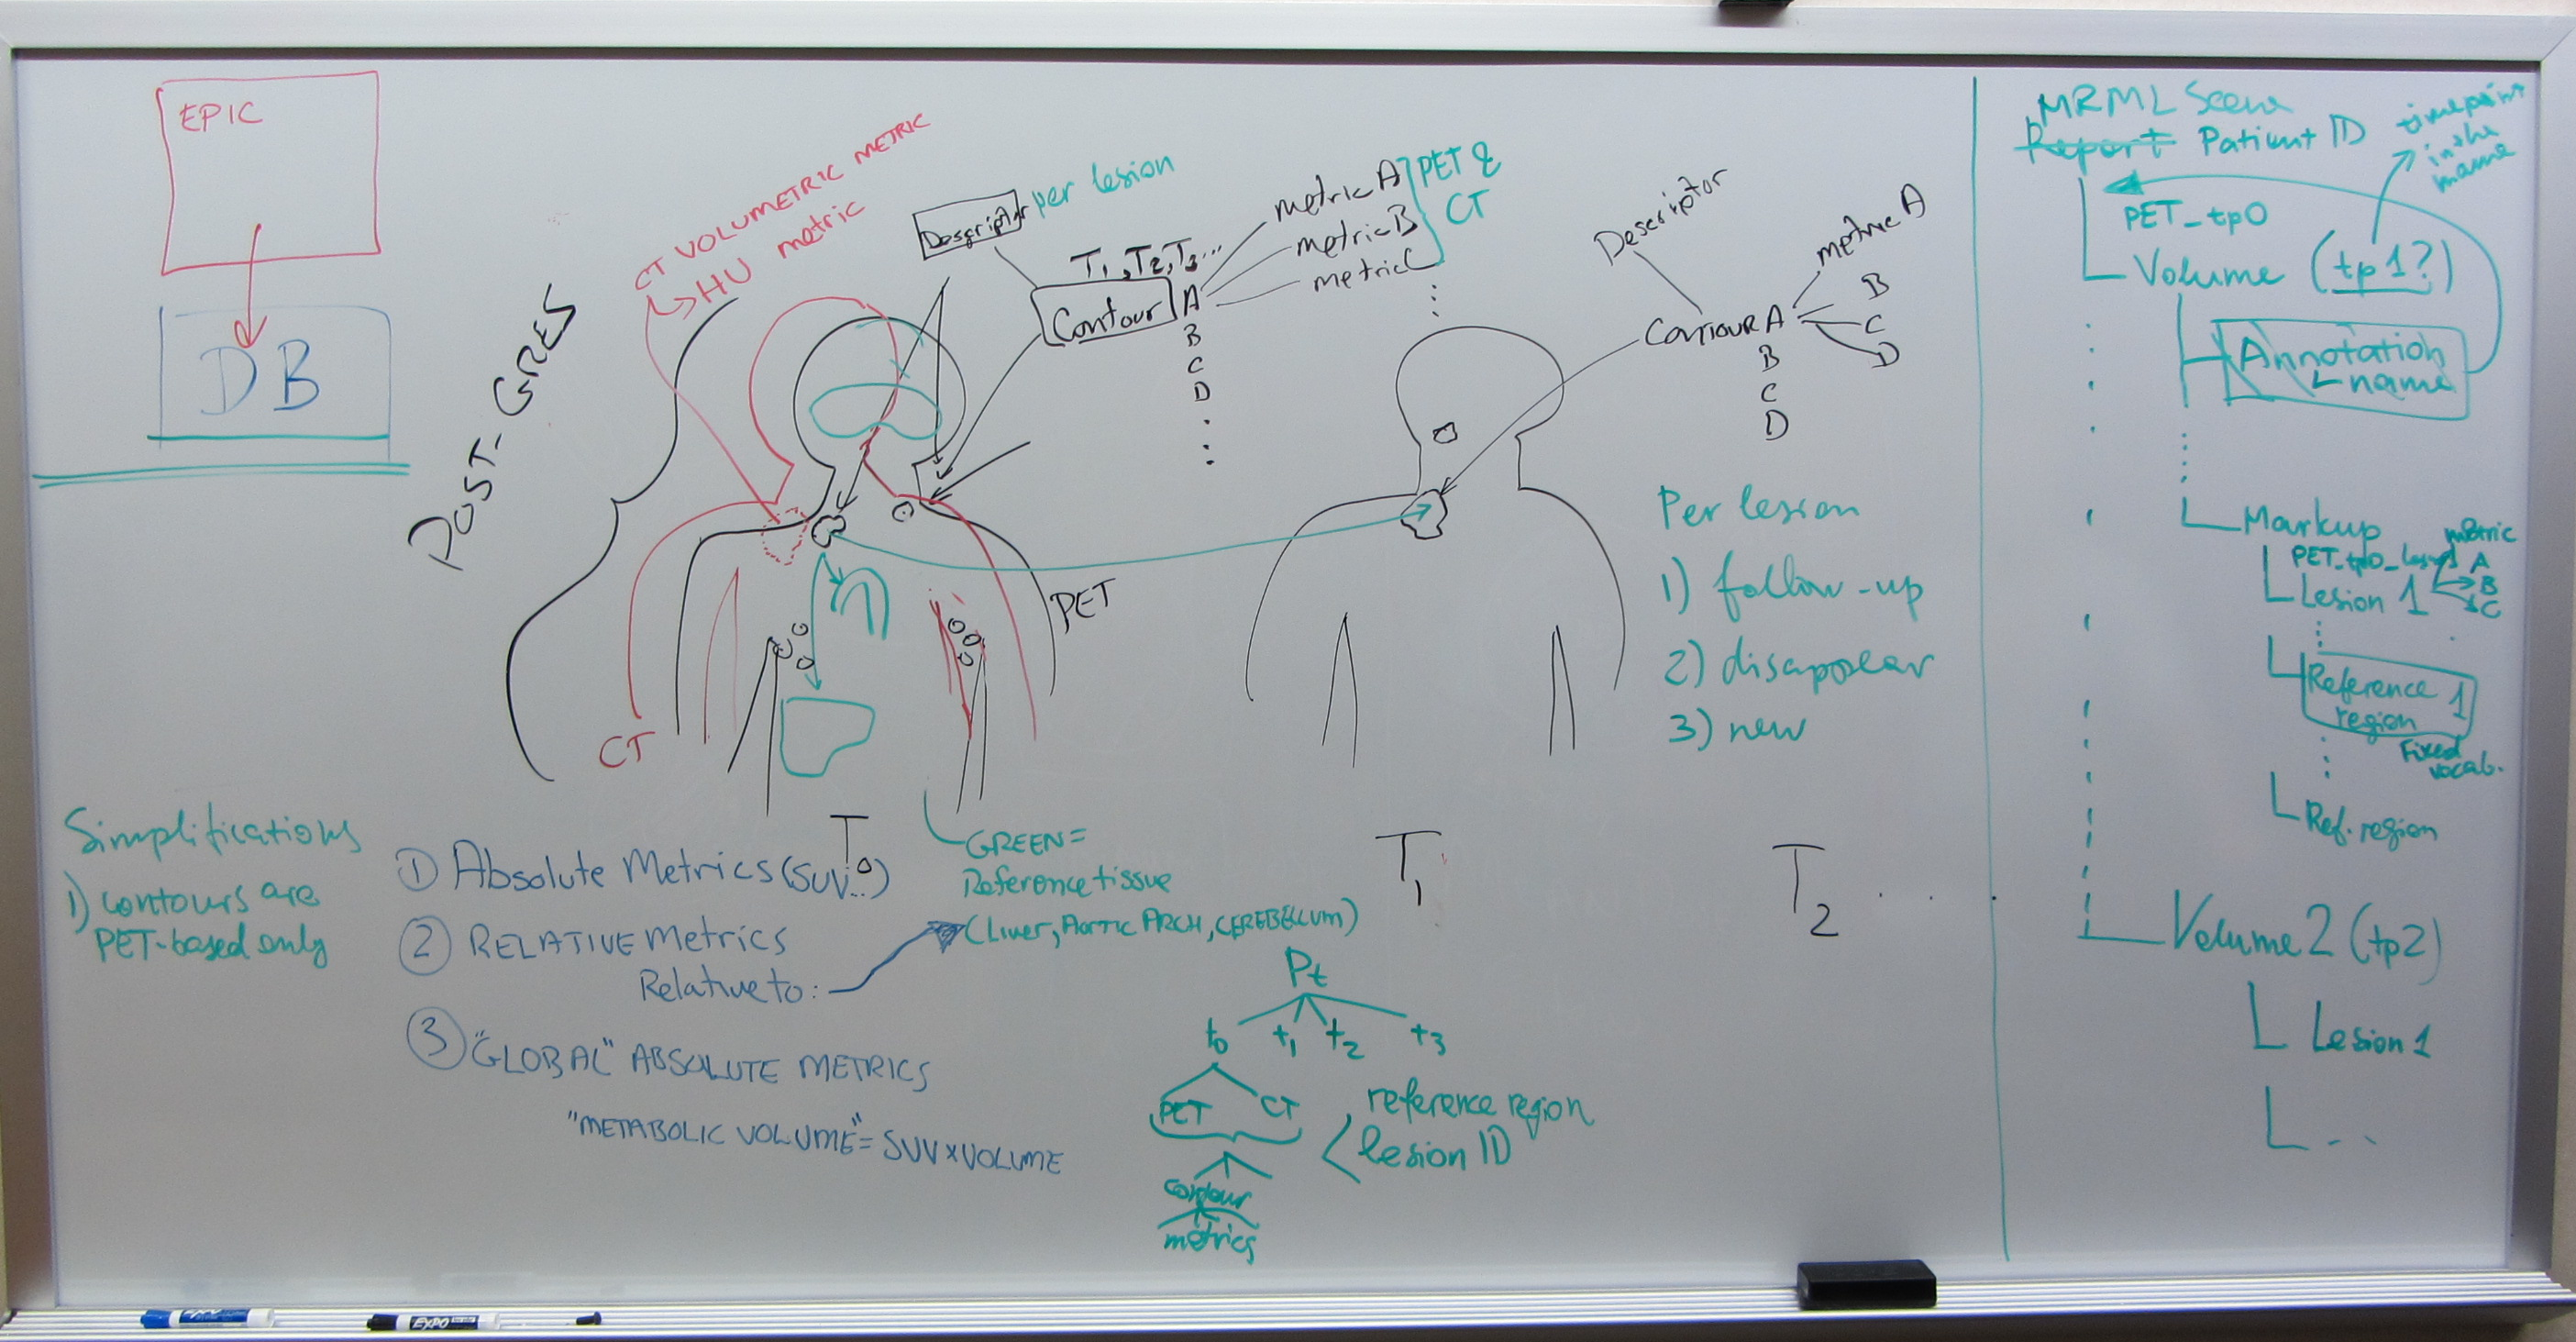 EPIC
DB
POST-GRES
CT VOLUMETRIC METRIC
HU metric
Descriptor
per lesion
T1, T2, T3...
Contour A
B
C
D
metric A
metric B
metric C
PET &
CT
PET
CT
T0
Descriptor
Contour A
B
C
D
metric A
B
C
D
Per lesion
1) follow-up
2) disappear
3) new
T1
T2 . . .
Simplifications
1) contours are
PET-based only
① Absolute Metrics (SUV...)
② RELATIVE Metrics
Relative to:
③ "GLOBAL" ABSOLUTE METRICS
"METABOLIC VOLUME" = SUV x VOLUME
GREEN =
Reference tissue
(Liver, Aortic ARCH, CEREBELLUM)
Pt
t0 t1 t2 t3
PET CT
reference region
lesion ID
contour
metrics
MRML Scene
Report Patient ID
timepoint
in the
name
PET_tp0
Volume (tp1?)
Annotation
name
Markup
metric
A
B
C
Lesion 1
Reference 1
region
Fixed
vocab.
Ref. region
Volume 2 (tp2)
Lesion 1
...
EXPO